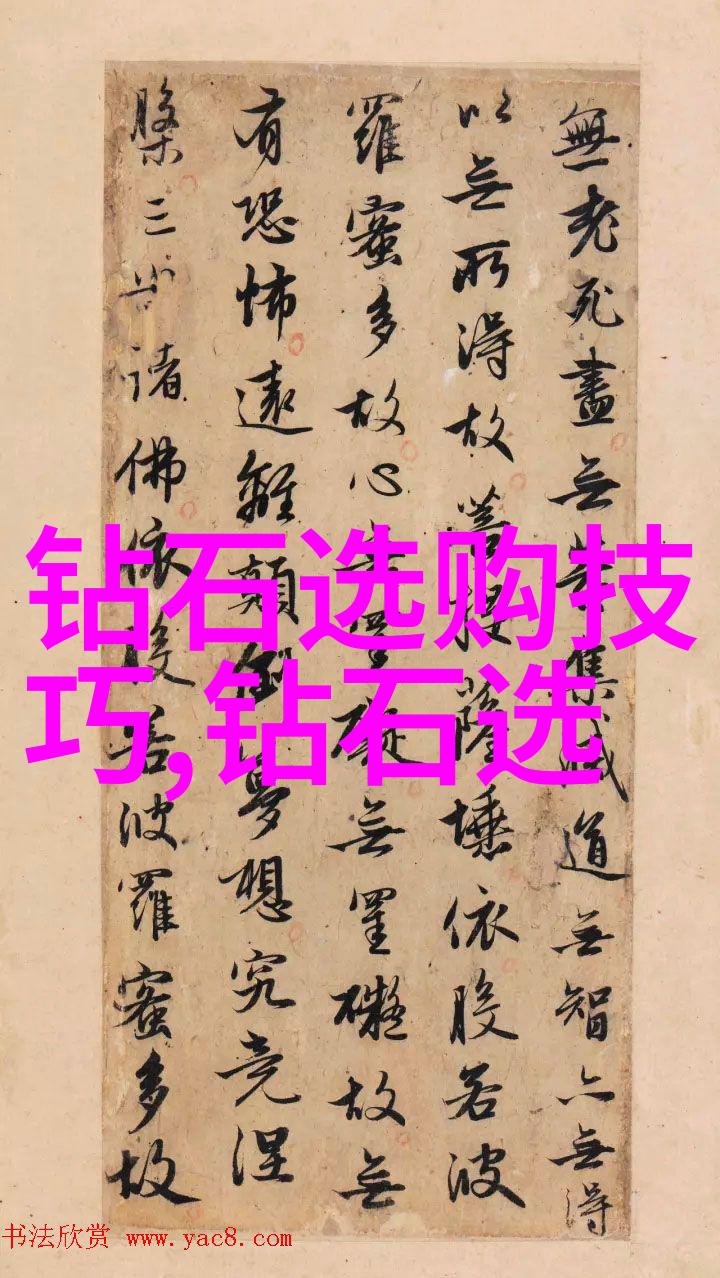 無老死盡無苦集滅道無智亦無得
以無所得故菩提薩埵依般若波
羅蜜多故心無罣礙無罣礙故無
有恐怖遠離顛倒夢想究竟涅
槃三世諸佛依般若波羅蜜多故
钻石选购技
巧,钻石选
书法欣赏 www.yac8.com